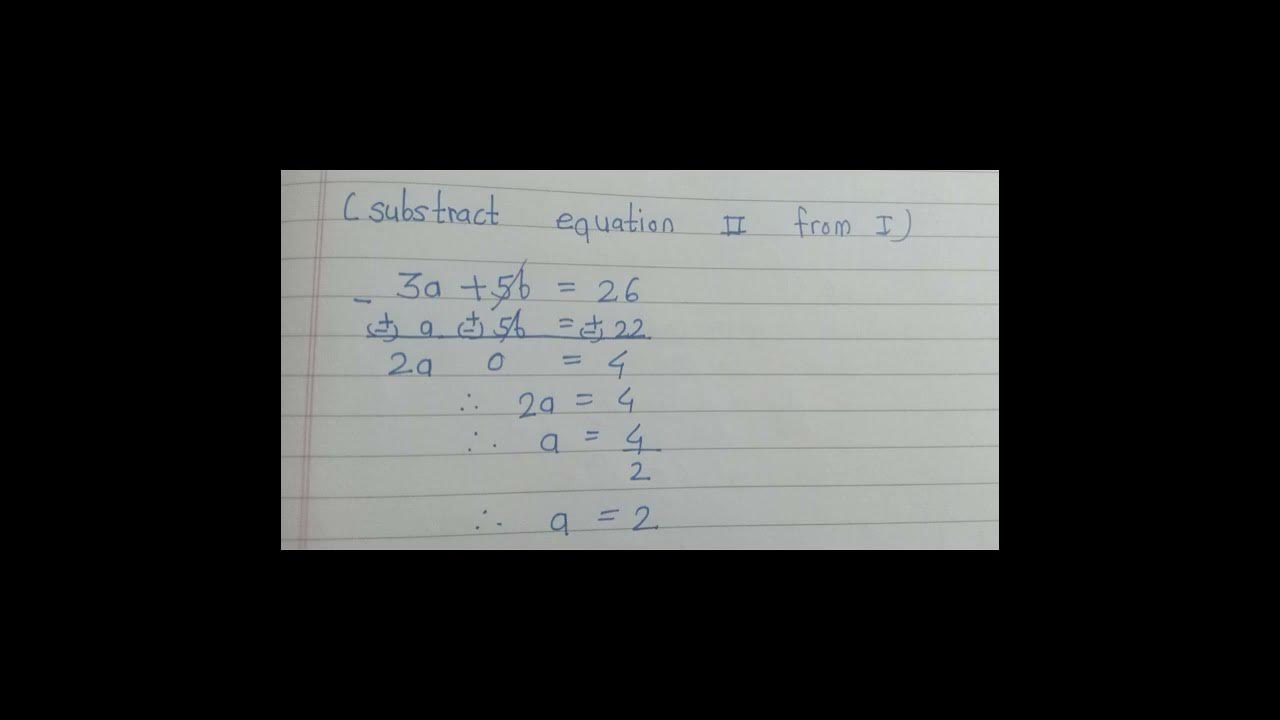 (substract equation II from I)
- 3a + 5b = 26
(±) a (±) 5b = (±) 22
2a 0 = 4
∴ 2a = 4
∴ a = 4
2
∴ a = 2